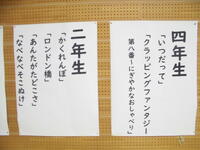 四年生
「いつだって」
「クラッピングファンタジー
第八番〜にぎやかなおしゃべり」
二年生
「かくれんぼ」
「ロンドン橋」
「あんたがたどこさ」
「なべなべそこぬけ」